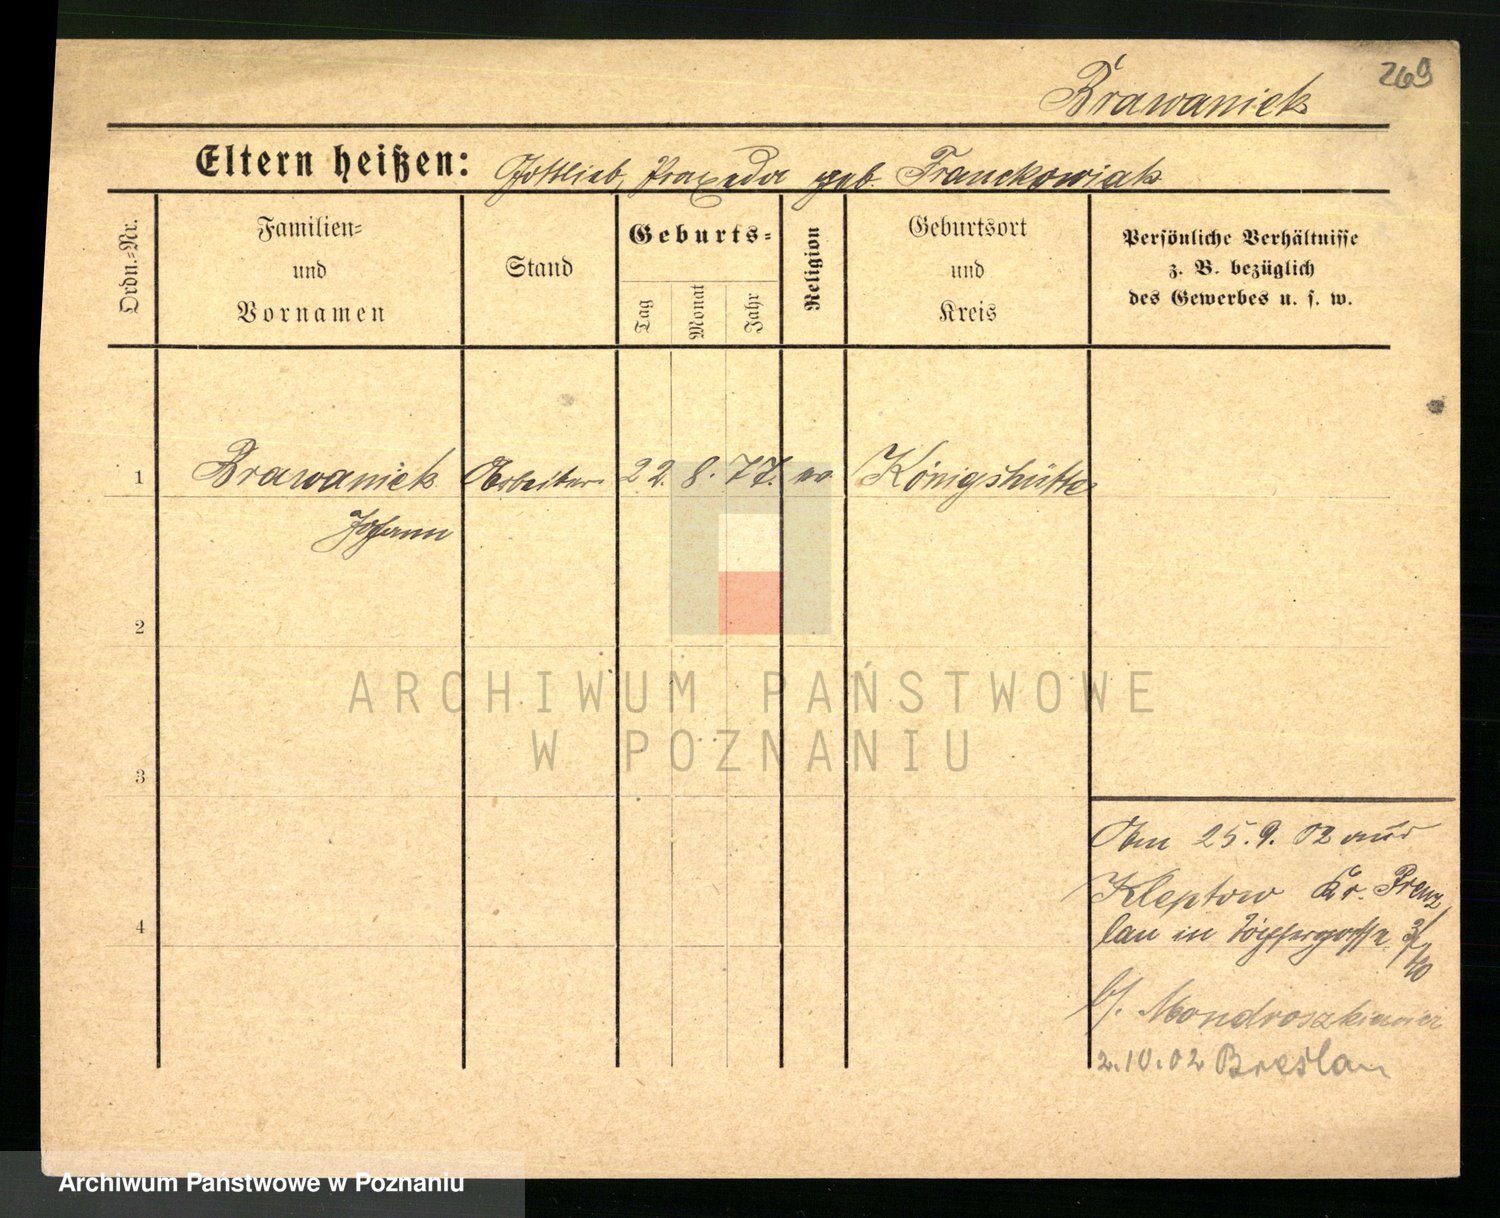 269
Brawaniek
Eltern heißen: Gottlieb, Praxeda geb. Franckowiak
Ordn.-Nr.
Familien-
und
Vornamen
Stand
Geburts-
Tag
Monat
Jahr
Religion
Geburtsort
und
Kreis
Persönliche Verhältnisse
z. B. bezüglich
des Gewerbes u. s. w.
1 Brawaniek Arbeiter 22. 8. 77. ev. Königshütte
Johann
2
ARCHIWUM PAŃSTWOWE
W POZNANIU
3
4
Am 25. 9. 02 aus
Kleptow Kr. Prenz
lau in Töpfergasse 3/
10
b/.
2. 10. 02 Breslau
Archiwum Państwowe w Poznaniu